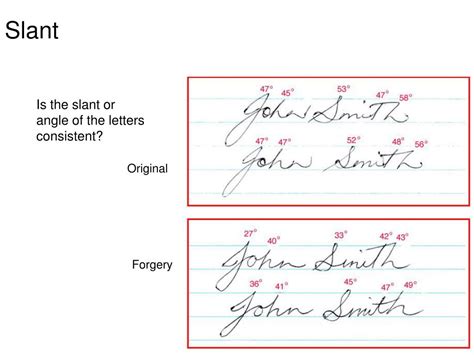 Slant
Is the slant or
angle of the letters
consistent?
Original
47° 45° 53° 47° 58°
John Smith
47° 47° 52° 48° 56°
John Smith
Forgery
27° 40° 33° 42° 43°
John Smith
36° 41° 45° 47° 49°
John Smith